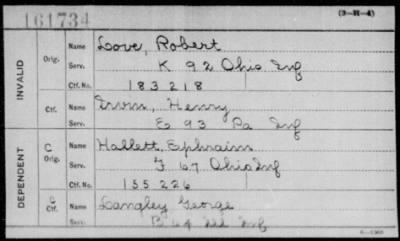 161734
(3-H-4)
INVALID
Orig. Name Love, Robert
Serv. K 92 Ohio Inf
Ctf. No. 183218
Ctf. Name Irvin, Henry
Serv. E 93 Pa Inf
DEPENDENT
C Orig. Name Hallett, Ephraim
Serv. F 67 Ohio Inf
Ctf. No. 155226
C Ctf. Name Langley George
Serv. B 64 Ill Inf